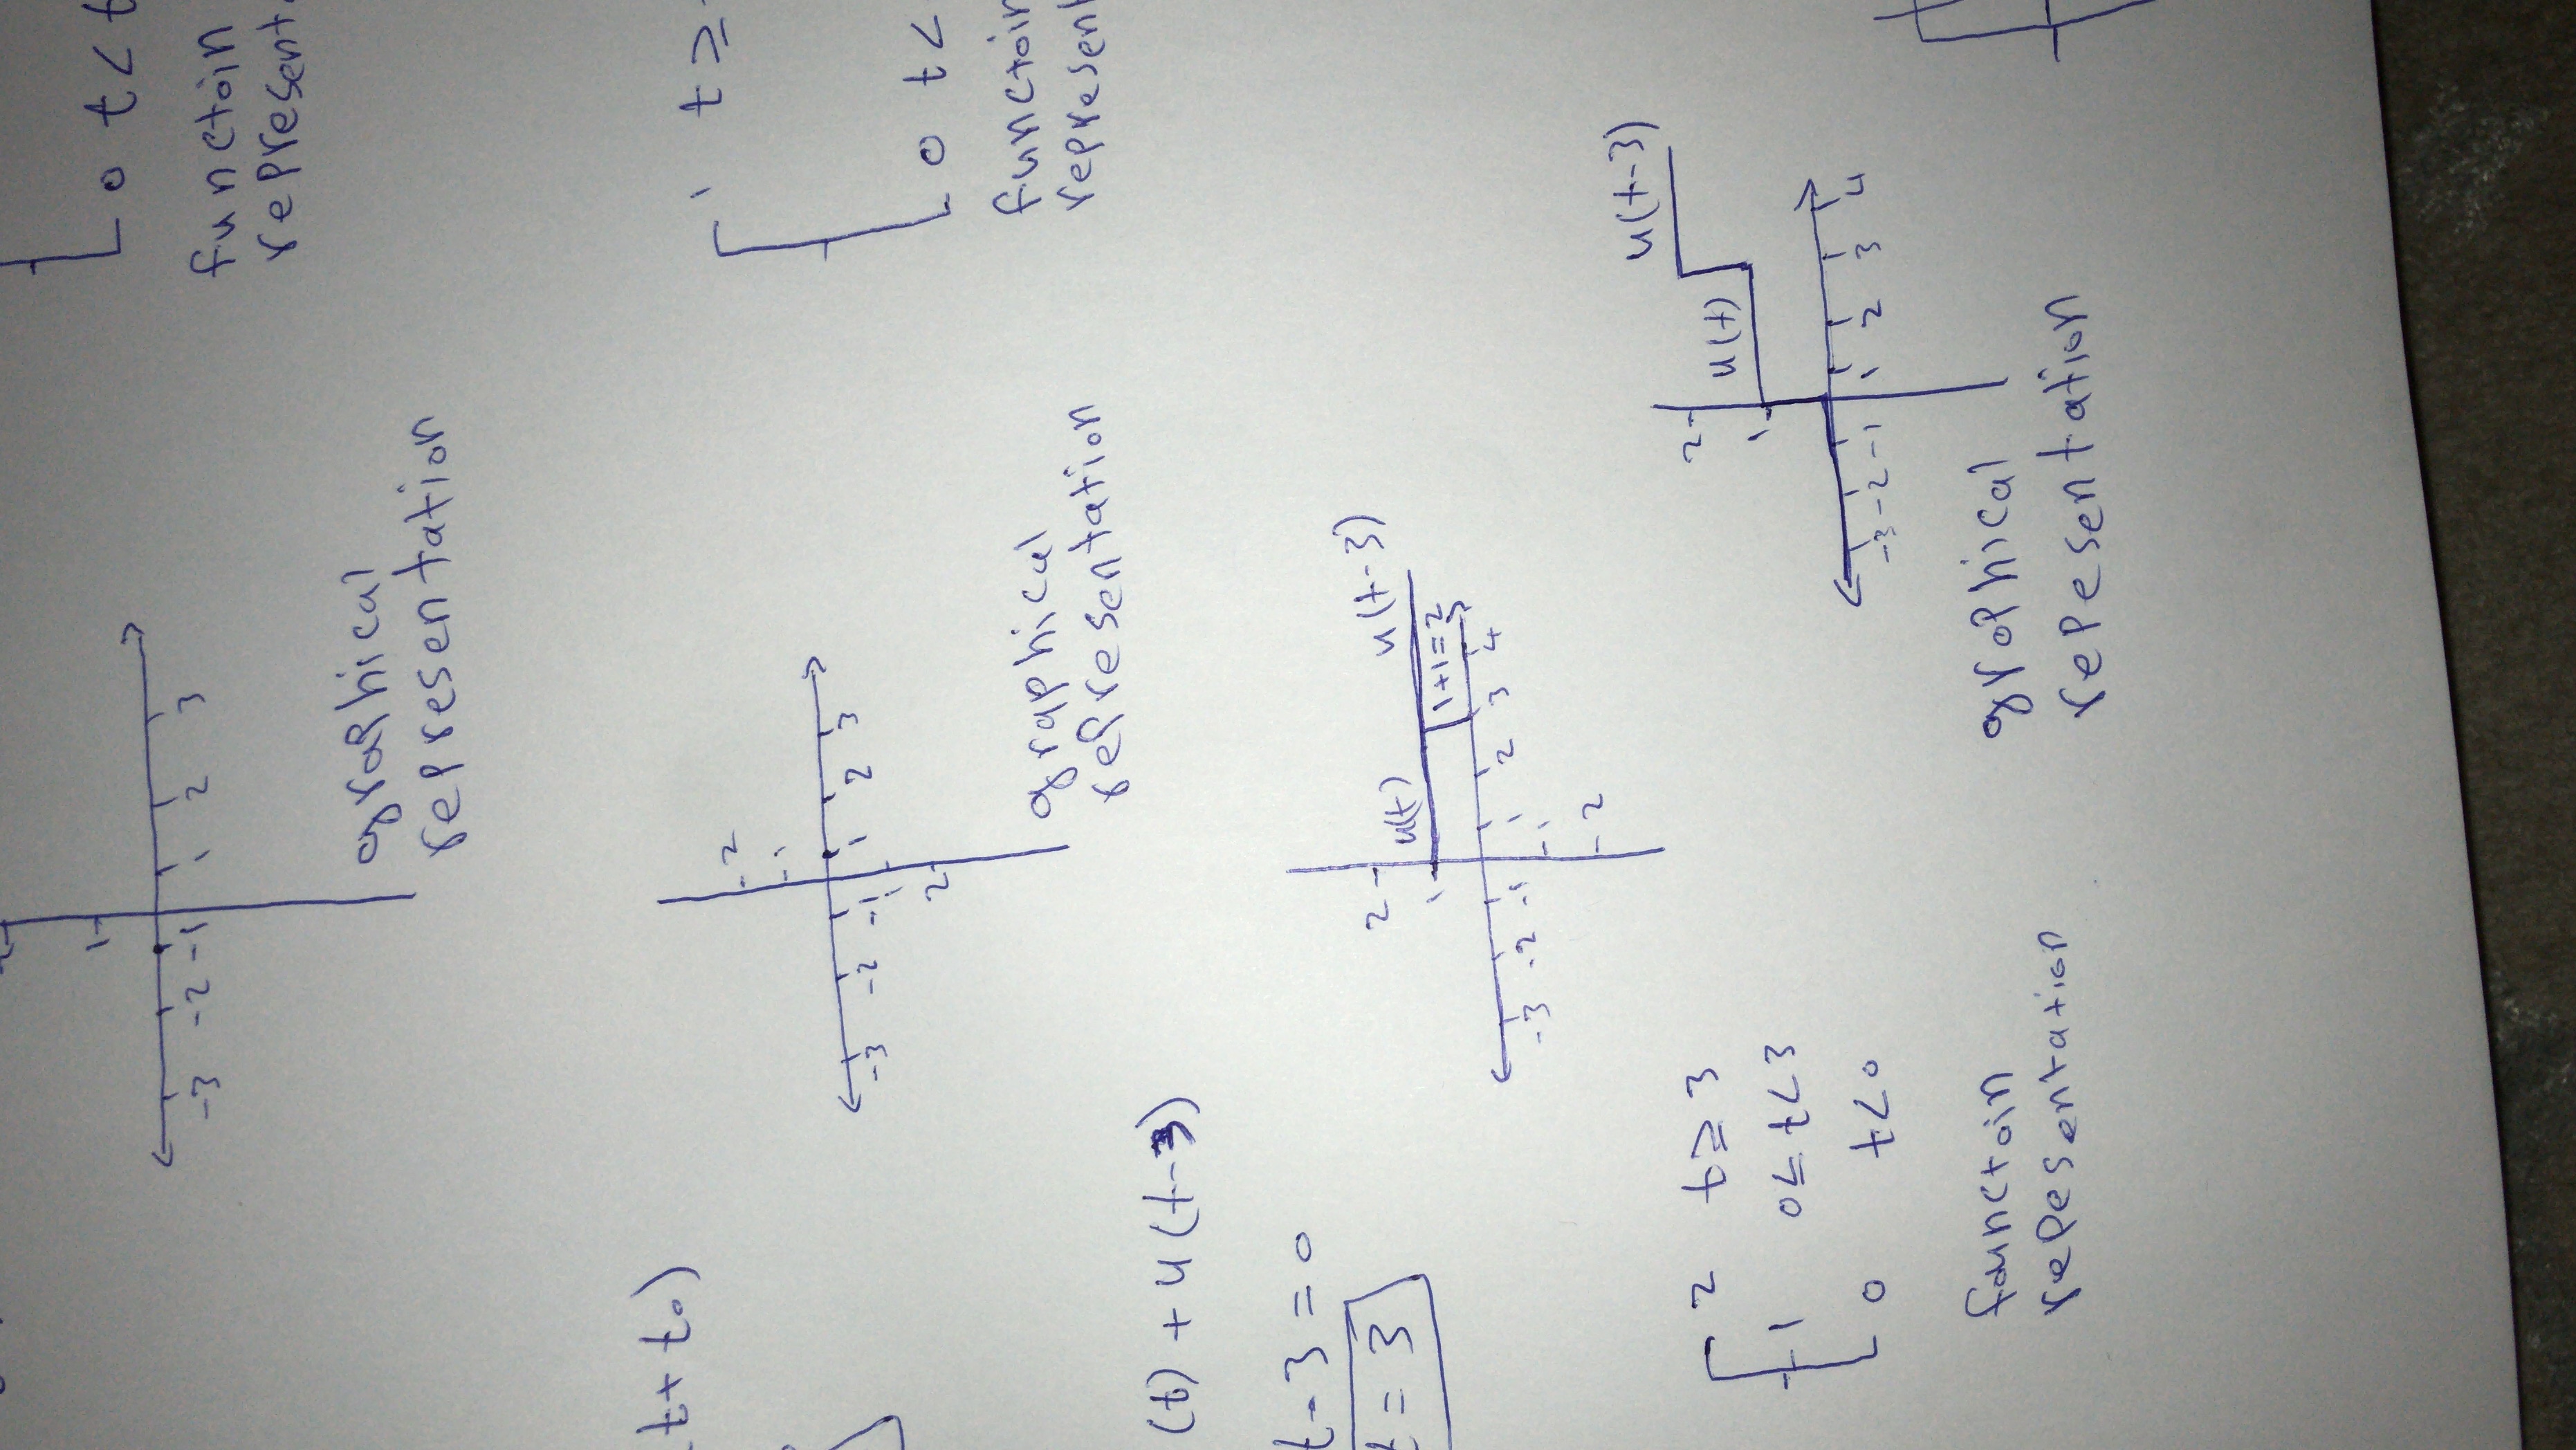 0 t<t
functoin
represent.
-3 -2 -1 1 2 3
1
graphical
representation
t+t₀)
2
1
-3 -2 -1 1 2 3
-1
2
graphical
representation
1 t≥
0 t<
functoin
represen
(t) + u(t-3)
t-3=0
t=3
2 u(t) u(t-3)
1 1+1=2
-3 -2 -1 1 2 3 4 5
-1
-2
2 t≥3
1 0≤t<3
0 t<0
functoin
repesentation
u(t-3)
2 u(t)
1
-3 -2 -1 1 2 3 4
grophical
repesentation